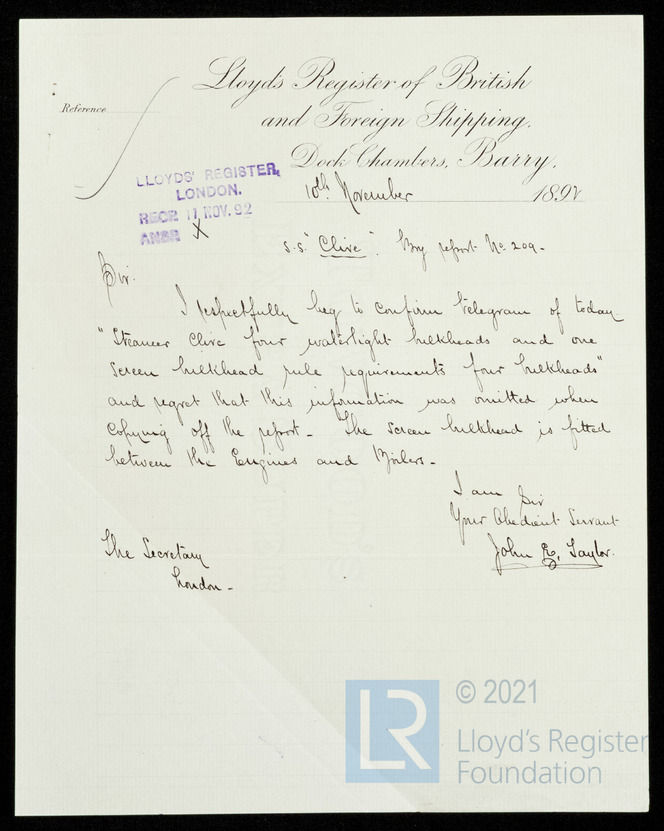 Lloyd's Register of British
and Foreign Shipping.
Reference
Dock Chambers, Barry,
10th November 1892
LLOYDS' REGISTER,
LONDON.
RECD 11 NOV. 92
ANSR X
s.s "Clive". Bry report No. 209.
Sir.
I respectfully beg to confirm telegram of today
"Steamer Clive four watertight bulkheads and one
screen bulkhead rule requirements four bulkheads"
and regret that this information was omitted when
copying off the report. The screen bulkhead is fitted
between the Engines and Boilers.
I am Sir
Your Obedient Servant
John E. Taylor.
The Secretary
London.
LR
© 2021
Lloyd's Register
Foundation